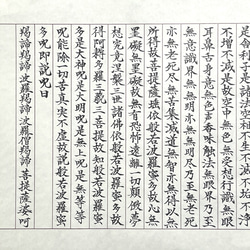 是舍利子是諸法空相不生不滅不垢不淨
不增不減是故空中無色無受想行識無眼
耳鼻舌身意無色聲香味觸法無眼界乃至
無意識界無無明亦無無明盡乃至無老死
亦無老死盡無苦集滅道無智亦無得以無
所得故菩提薩埵依般若波羅蜜多故心無
罣礙無罣礙故無有恐怖遠離一切顛倒夢
想究竟涅槃三世諸佛依般若波羅蜜多故
得阿耨多羅三藐三菩提故知般若波羅蜜
多是大神呪是大明呪是無上呪是無等等
呪能除一切苦真実不虚故説般若波羅蜜
多呪即説呪曰
羯諦羯諦 波羅羯諦 波羅僧羯諦 菩提薩婆呵